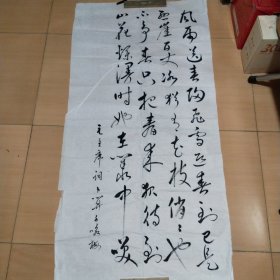 风雨送春归飞雪迎春到已是
悬崖百丈冰犹有花枝俏〻也
不争春只把春来报待到
山花烂漫时她在丛中笑
毛主席词卜算子咏梅